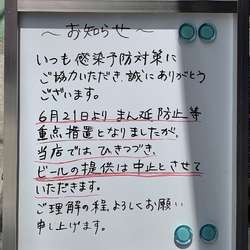 ～お知らせ～
いつも感染予防対策に
ご協力いただき、誠にありがとう
ございます。
6月21日より まん延防止等
重点措置となりましたが、
当店では、ひきつづき、
ビールの提供は中止とさせて
いただきます。
ご理解の程、よろしくお願い
申し上げます。